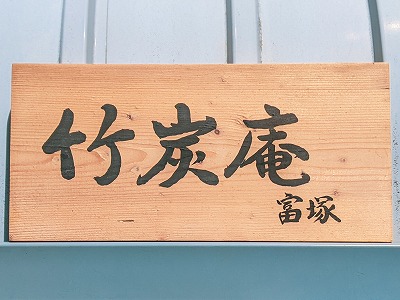 竹炭庵
富塚